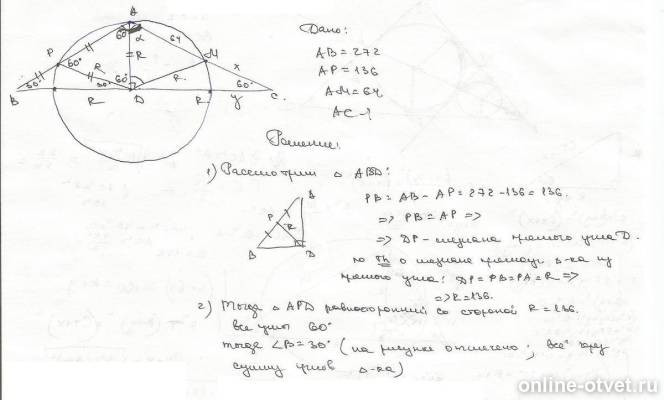 A
60°
α
64
P
R
= R
M
60°
R
x
B
30°
30°
60°
60°
C.
R
D
R
y
Дано:
AB = 272
AP = 136
AM = 64
AC - ?
Решение:
1) Рассмотрим Δ ABD:
A
P
R
B
D
PB = AB - AP = 272 - 136 = 136.
=> PB = AP =>
=> DP - медиана прямого угла D.
по Th о медиане прямоуг. Δ-ка из
прямого угла: DP = PB = PA = R =>
=> R = 136.
2) Тогда Δ APD равносторонний со стороной R = 136.
все углы 60°
тогда ∠B = 30° (на рисунке отмечено; всё через
сумму углов Δ-ка)
online-otvet.ru